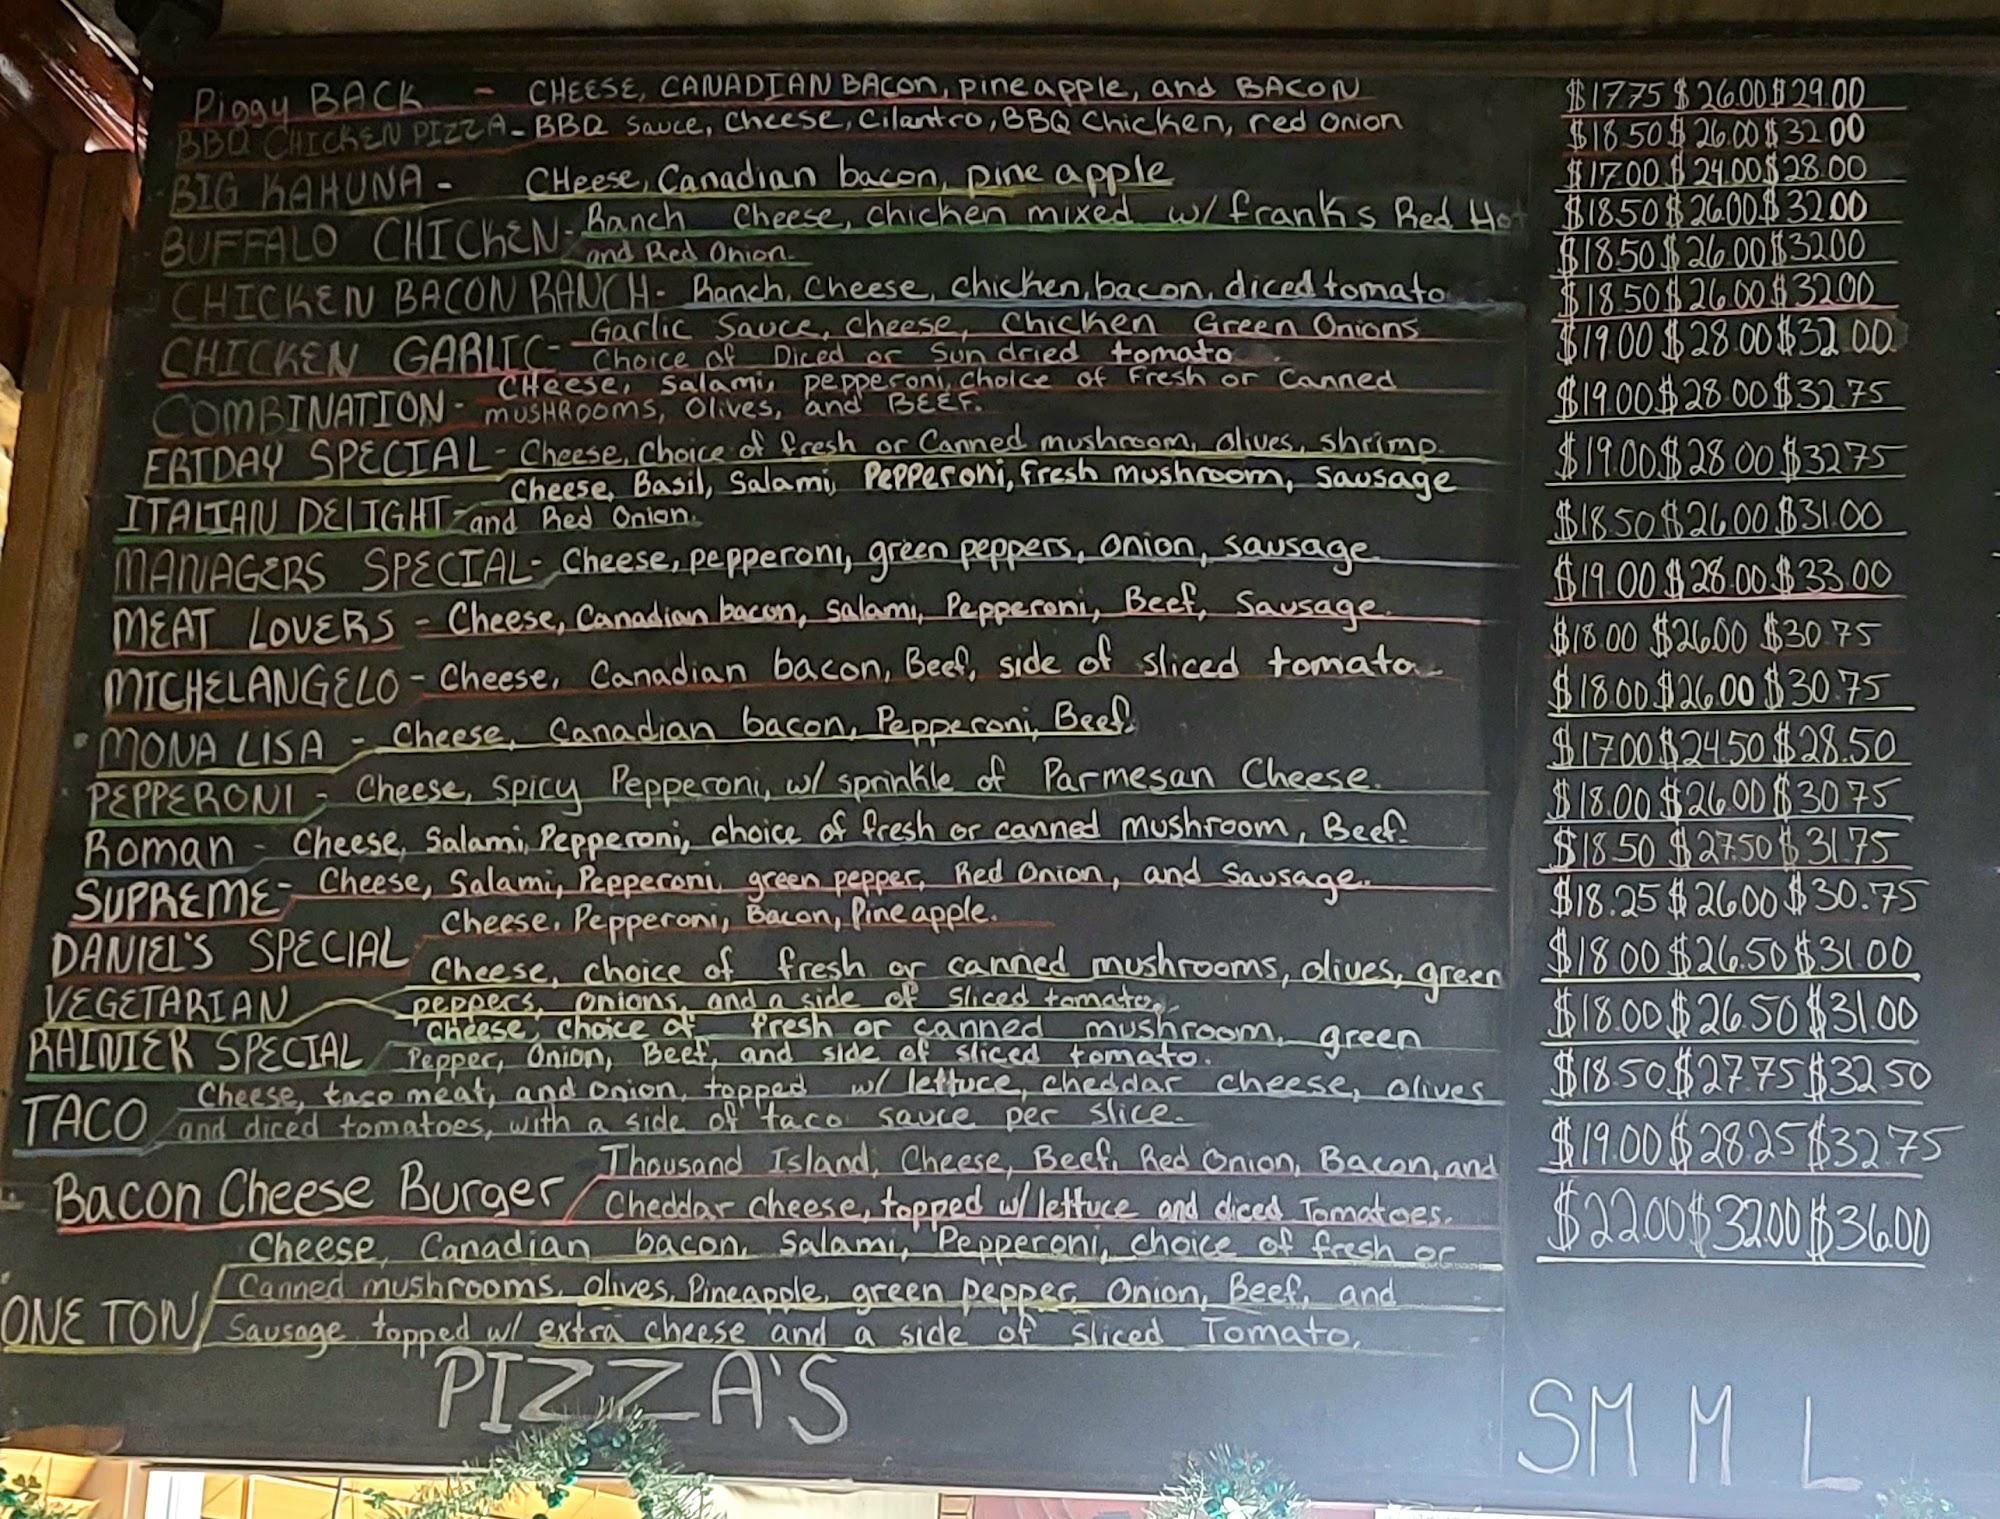 Piggy BACK - CHEESE, CANADIAN BACON, pineapple, and BACON $17.75 $26.00 $29.00
BBQ CHICKEN PIZZA - BBQ Sauce, Cheese, Cilantro, BBQ Chicken, red onion $18.50 $26.00 $32.00
BIG KAHUNA - CHeese, Canadian bacon, pine apple $17.00 $24.00 $28.00
BUFFALO CHICKEN - Ranch Cheese, chicken mixed w/ franks Red Hot $18.50 $26.00 $32.00
and Red Onion.
CHICKEN BACON RANCH - Ranch, Cheese, chicken, bacon, diced tomato $18.50 $26.00 $32.00
CHICKEN GARLIC - Garlic Sauce, cheese, chicken Green Onions $18.50 $26.00 $32.00
Choice of Diced or Sun dried tomato.
COMBINATION - CHeese, Salami, pepperoni, choice of Fresh or Canned $19.00 $28.00 $32.00
mUSHROOMS, Olives, and BEEF.
FRIDAY SPECIAL - Cheese, Choice of fresh or Canned mushroom, olives, shrimp. $19.00 $28.00 $32.75
ITALIAN DELIGHT - Cheese, Basil, Salami, Pepperoni, Fresh mushroom, Sausage $19.00 $28.00 $32.75
and Red Onion.
MANAGERS SPECIAL - Cheese, pepperoni, green peppers, onion, sausage $18.50 $26.00 $31.00
MEAT LOVERS - Cheese, Canadian bacon, salami, Pepperoni, Beef, Sausage. $19.00 $28.00 $33.00
MICHELANGELO - Cheese, Canadian bacon, Beef, side of sliced tomato $18.00 $26.00 $30.75
MONA LISA - Cheese, Canadian bacon, Pepperoni, Beef. $18.00 $26.00 $30.75
PEPPERONI - Cheese, Spicy Pepperoni, w/ sprinkle of Parmesan Cheese. $17.00 $24.50 $28.50
Roman - Cheese, Salami, Pepperoni, choice of fresh or canned mushroom, Beef. $18.00 $26.00 $30.75
SUPREME - Cheese, Salami, Pepperoni, green pepper, Red Onion, and Sausage. $18.50 $27.50 $31.75
DANIEL'S SPECIAL Cheese, Pepperoni, Bacon, Pineapple. $18.25 $26.00 $30.75
VEGETARIAN Cheese, choice of fresh or canned mushrooms, olives, green $18.00 $26.50 $31.00
peppers, onions, and a side of Sliced tomato.
RAINIER SPECIAL cheese, choice of fresh or canned mushroom, green $18.00 $26.50 $31.00
Pepper, Onion, Beef, and side of sliced tomato.
TACO Cheese, taco meat, and onion, topped w/ lettuce, cheddar cheese, olives $18.50 $27.75 $32.50
and diced tomatoes, with a side of taco sauce per slice.
Bacon Cheese Burger Thousand Island, Cheese, Beef, Red Onion, Bacon, and $19.00 $28.25 $32.75
Cheddar cheese, topped w/ lettuce and diced Tomatoes.
ONE TON Cheese, Canadian bacon, Salami, Pepperoni, choice of fresh or $22.00 $32.00 $36.00
Canned mushrooms, olives, Pineapple, green pepper, Onion, Beef, and
Sausage topped w/ extra cheese and a side of sliced Tomato.
PIZZA'S SM M L